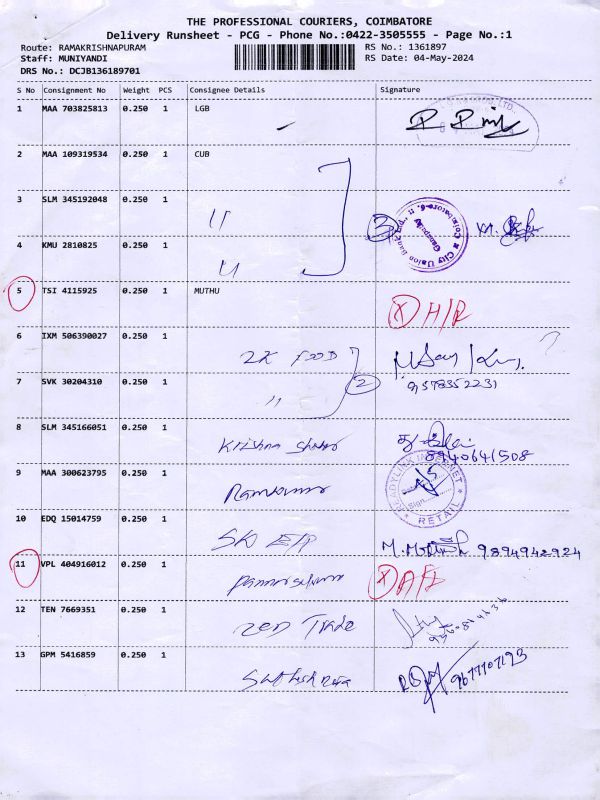 THE PROFESSIONAL COURIERS, COIMBATORE
Delivery Runsheet - PCG - Phone No.:0422-3505555 - Page No.:1
Route: RAMAKRISHNAPURAM
RS No.: 1361897
Staff: MUNIYANDI
RS Date: 04-May-2024
DRS No.: DCJB136189701
S No Consignment No Weight PCS Consignee Details Signature
1 MAA 703825813 0.250 1 LGB
2 MAA 109319534 0.250 1 CUB
3 SLM 345192048 0.250 1 11 3
4 KMU 2810825 0.250 1 11
5 TSI 4115925 0.250 1 MUTHU X H/R
6 IXM 506390027 0.250 1 2K FOOD
7 SVK 30204310 0.250 1 11 2 9578352231
8 SLM 345166051 0.250 1 Krishna 8940641508
9 MAA 300623795 0.250 1 Ramkumar READYLINK INTERNET RETAIL
10 EDQ 15014759 0.250 1 9894942924
11 VPL 404916012 0.250 1 X
12 TEN 7669351 0.250 1 ZED Trade
13 GPM 5416859 0.250 1 9677107193